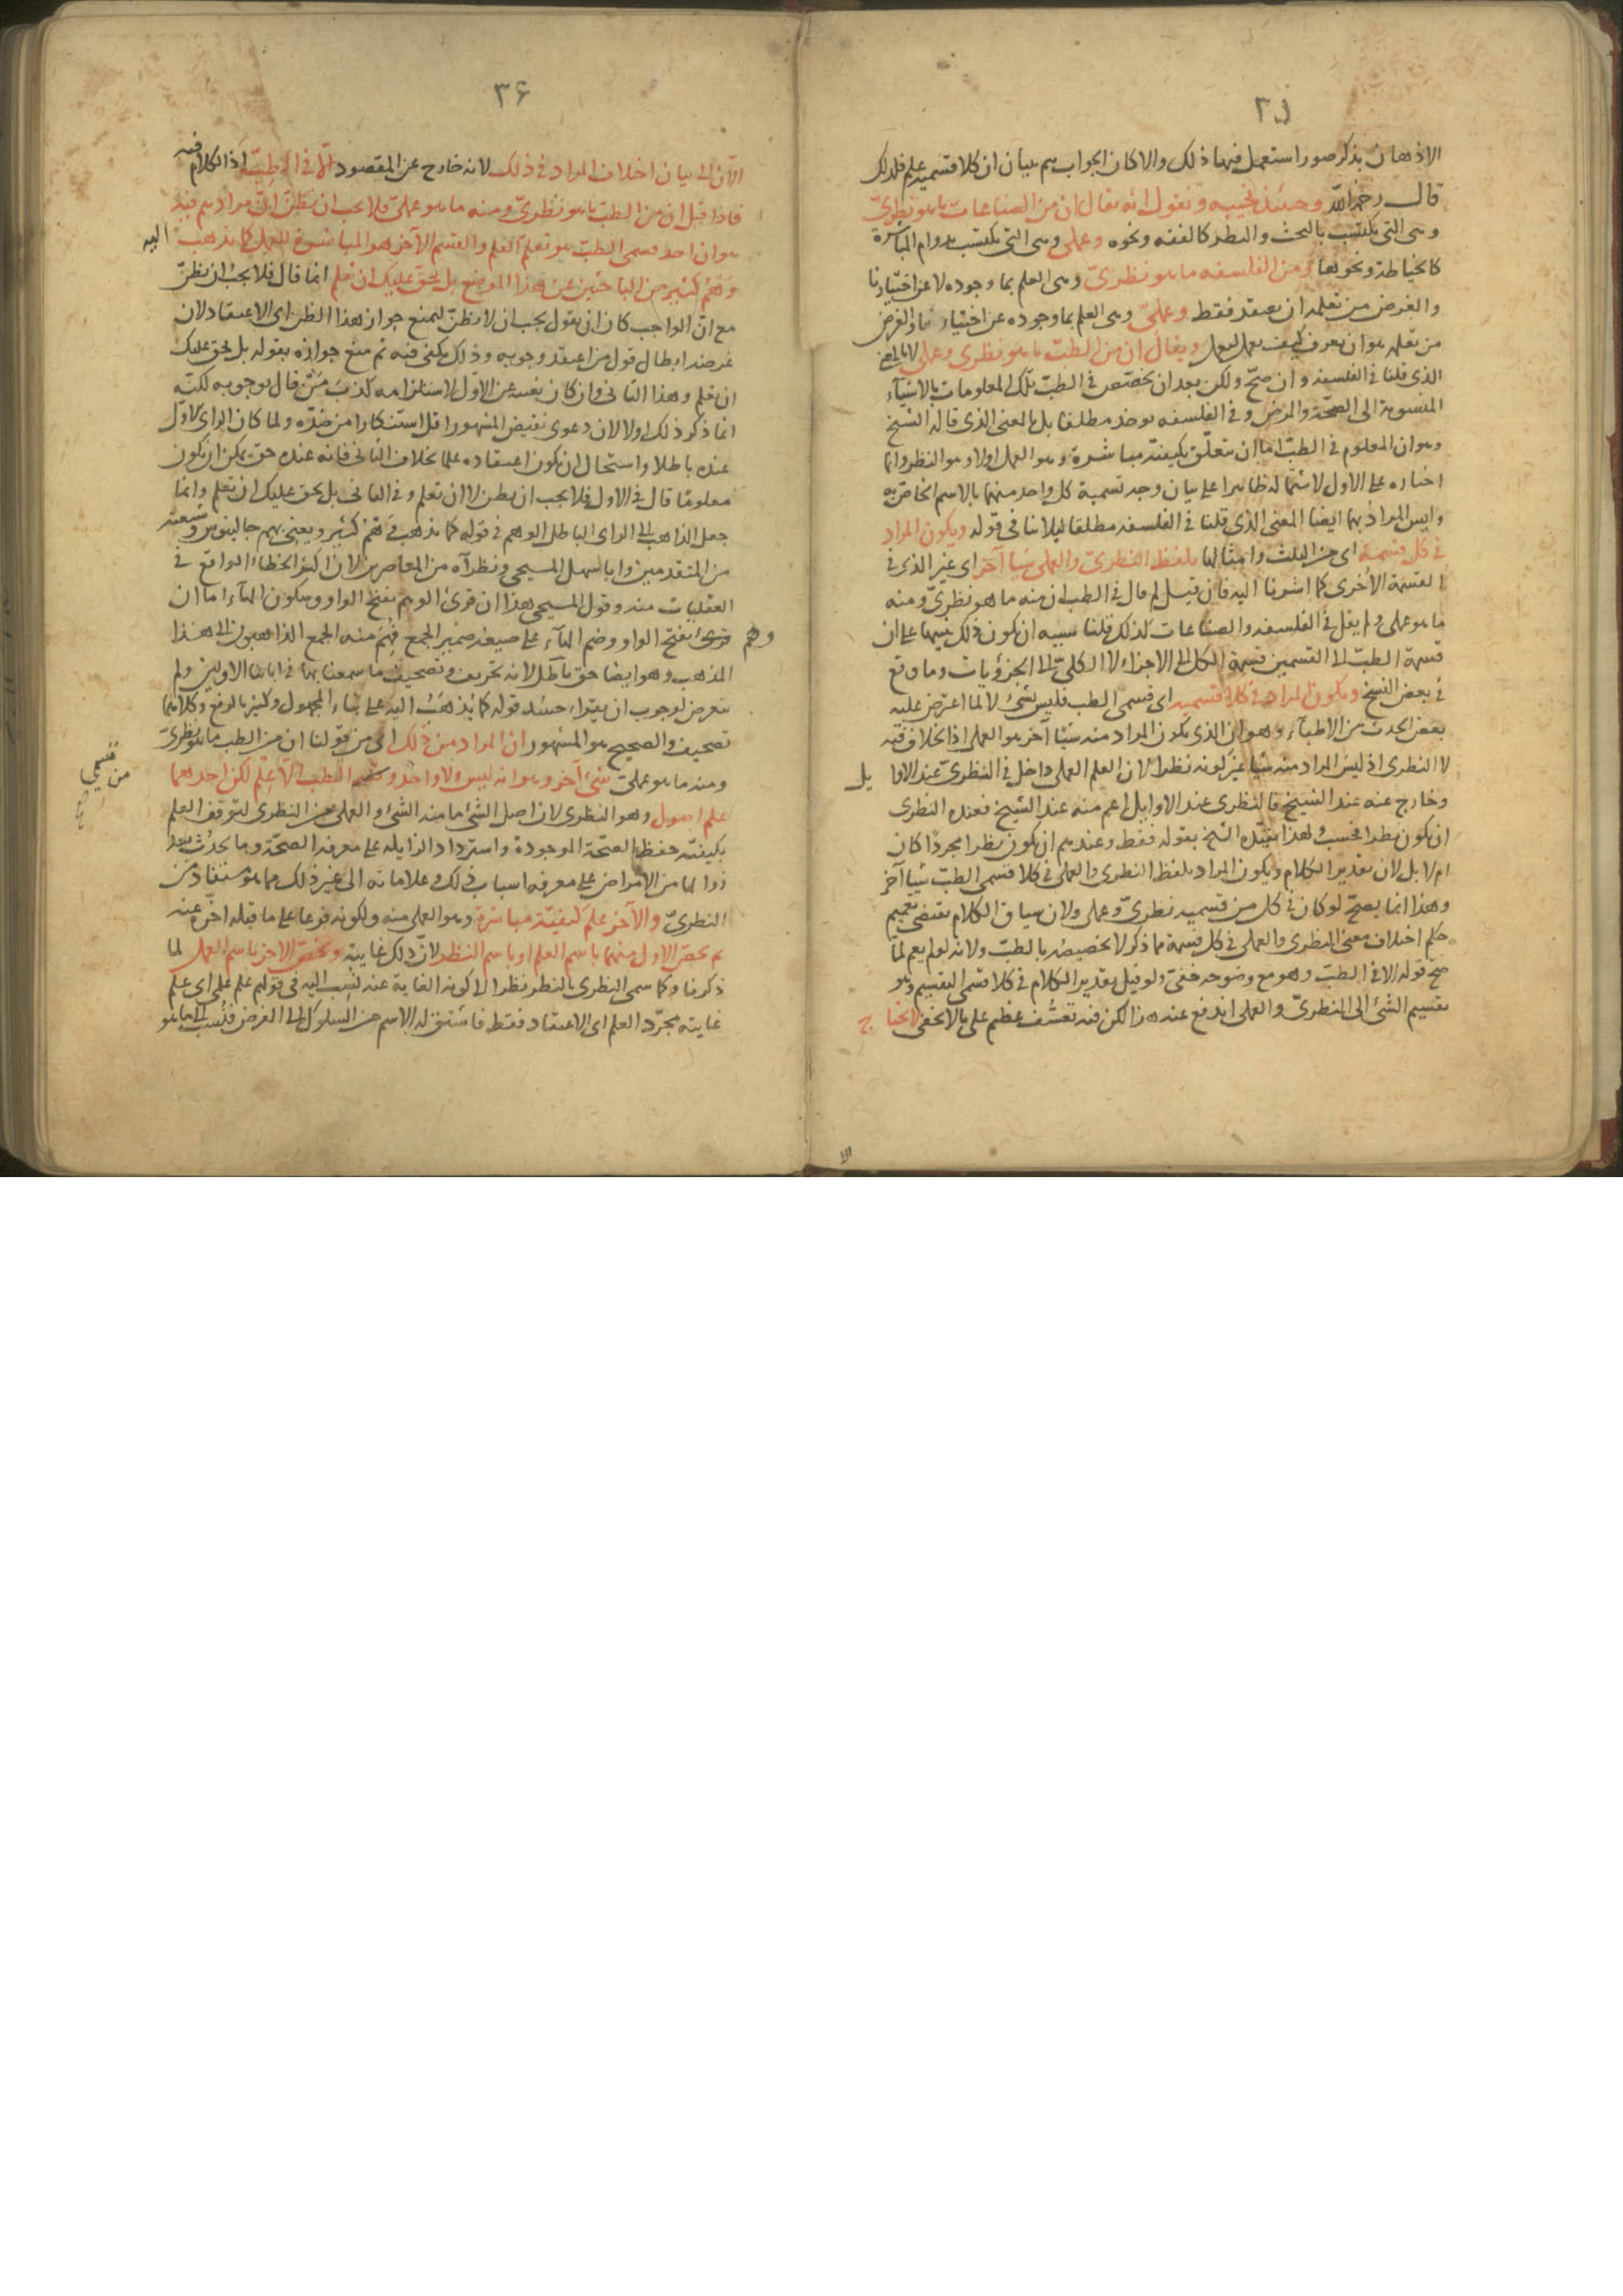 ٣٥
الاذهان بذكر صور استعمل فيها ذلك والا كان الجواب يتم ببيان ان كلا قسميه علم فلذلك
قال رحمه الله وحينئذ نجيبه ونقول انه يقال ان من الصناعات ما هو نظرىّ
وهى التى تكتسب بالبحث والنظر كالفقه ونحوه وعملى وهى التى تكتسب بدوام المباشرة
كالخياطة ونحوها ومن الفلسفه ما هو نظرىّ وهى العلم بما وجوده لا عن اختيارنا
والغرض من تعلمه ان يعتقد فقط وعملىّ وهى العلم بما وجوده عن اختيارنا والغرض
من تعلمه هو ان يعرف كيف يعمل ليعمل ويقال ان من الطبّ ما هو نظرى وعملى لا بالمعنى
الذى قلنا فى الفلسفه وان صحّ ولكن بعد ان يخصّص فى الطبّ تلك المعلومات بالاشيآء
المنسوبة الى الصحّة والمرض وفى الفلسفه يوخذ مطلقا بل بالمعنى الذى قاله الشيخ
وهو ان المعلوم فى الطبّ اما ان يتعلّق بكيفيّة مباشرة وهو العمل اولا وهو النظر وانما
اختاره على الاول لاشتماله ظاهرا على بيان وجه تسمية كل واحد منهما بالاسم الخاصّ به
وليس المراد بهما ايضا المعنى الذى قلنا فى الفلسفه مطلقا لما فى قوله ويكون المراد
فى كل قسمة اى من الثلث وامثالها بلفظ النظرىّ والعملى شيا آخر اى غير الذى فى
القسمة الاُخرى كما اشرنا اليه فان قيل لم قال فى الطب ان منه ما هو نظرىّ ومنه
ما هو عملى ولم يقل فى الفلسفه والصناعات كذلك قلنا يشبه ان يكون ذلك تنبيها على ان
قسمة الطبّ الى القسمين قسمة الكل الى الاجزاء لا الكلىّ الى الجزؤيات وما وقع
فى بعض النسخ ويكون المراد فى كلا قسميه اى قسمى الطب فليس بشئ لا لما اعترض عليه
بعض احدث من الاطبآء وهو ان الذى يكون المراد منه شيا آخر هو العملى اذ الخلاف فيه
لا النظرى اذ ليس المراد منه شيا غير كونه نظرا لان العلم العملى داخل فى النظرىّ عند الاوا يل
وخارج عنه عند الشيخ فالنظرى عند الاوايل اعم منه عند الشيخ فعنده النظرى
ان يكون نظرا فحسب ولهذا يقيّده الشيخ بقوله فقط وعندهم ان يكون نظرا مجرداً كان
ام لا بل لان تقدير الكلام ويكون المراد بلفظ النظرى والعملى فى كلا قسمى الطبّ شيا آخر
وهذا انما يصحّ لو كان فى كل من قسميه نظرىّ وعملى ولان سياق الكلام يقتضى تعميم
حكم اختلاف معنى النظرى والعملى فى كل قسمة مما ذكر لا تخصيصه بالطبّ ولانه لو لم يعم لما
صح قوله الا فى الطبّ وهو مع وضوحه خفىّ ولو قيل تقدير الكلام فى كلا قسمى التقسيم وهو
تقسيم الشئ الى النظرىّ والعملى اندفع عنه هذا لكن فيه تعسّف عظيم على ما لا يخفى لا نحتا ج
٣۶
الآن الى بيان اختلاف المراد فى ذلك لانه خارج عن المقصود الّا فى الطبّ اذ الكلام فيه
فاذا قيل ان من الطبّ ما هو نظرىّ ومنه ما هو عملىّ فلا يجب ان يظنّ انّ مرادهم فيه
هو ان احد قسمى الطبّ هو تعلّم العلم والقسم الآخر هو المباشرة للعمل كما يذهب اليه
وَهْمُ كثير من الباحثين عن هذا الموضع بل يحقّ عليك ان تعلم انما قال فلا يجب ان يظنّ
مع انّ الواجب كان ان يقول يجب ان لا يظنّ ليمنع جواز هذا الظن اى الاعتقاد لان
غرضه ابطال قول من اعتقد وجوبه وذلك يكفى فيه ثم منع جوازه بقوله بل يحق عليك
ان تعلم وهذا الثانى وان كان يغنيه عن الاول لاستلزامه كذب من قال بوجوبه لكنّه
انما ذكر ذلك اولا لان دعوى نقيض المشهور اقل استنكارا من ضدّه ولما كان الراى الاول
عنده باطلا واستحال ان يكون اعتقاده علما بخلاف الثانى فانه عنده حق يمكن ان يكون
معلومًا قال فى الاول فلا يجب ان يظن لا ان تعلم وفى الثانى بل يحق عليك ان تعلم وانما
جعل الذاهب الى الراى الباطل الوهم فى قوله كما يذهب وَهْمُ كثير ويعنى بهم جالينوس وشيعته
من المتقدمين وابا سهل المسيحى ونظرآه من المعاصرين لان اكثر الخطاء الواقع فى
العقليات منه وقول المسيحى هذا ان قرئ الوهم بفتح الواو وسكون الهآء اما ان
وهم قرئ بفتح الواو وضم الهآء على صيغة ضمير الجمع فُهِمَ منه الجمع الذاهبون الى هذا
المذهب وهو ايضا حق باطل لانه تحريف وتصحيف ما سمعنا بهذا فى ابائنا الاولين ولم
يتعرض لوجوب ان يقراء حينئذ قوله كما يُذهَبُ اليه على بناء المجهول وكثير بالرفع وكلاهما
تصحيف والصحيح هو المشهور ان المراد من ذلك اى من قولنا ان من الطب ما هو نظرىّ
ومنه ما هو عملىّ شئ آخر وهو انه ليس ولا واحد من قسمى الطب الّا علْم لكن احدهما
علم اصول وهو النظرى لان اصل الشئ ما منه الشئ والعملى من النظرى لتوقف العلم
بكيفيّة حفظ الصحّة الموجودة واسترداد الزايله على معرفة الصحّة وما يحدُث بعد
زوالها من الامراض على معرفة اسباب ذلك وعلاماته الى غير ذلك مما هو مستفاد من
النظرىّ والآخر علم كيفيّة مباشرة وهو العملى منه ولكونه فرعا على ما قبله اخّره عنه
ثم يخصّ الاول منهما باسم العلم او باسم النظر لانّ ذلك غايته ويخصّ الآخر باسم العمل لما
ذكرنا وكما سمى النظرى بالنظر نظرا الى كونه الغاية عنه نُسب اليه فى قولهم علم علمى اى علم
غايته مجرّد العلم اى الاعتقاد فقط فاشتق له الاسم من السلوك الى الغرض فنُسب الى ما هو
من قسمى